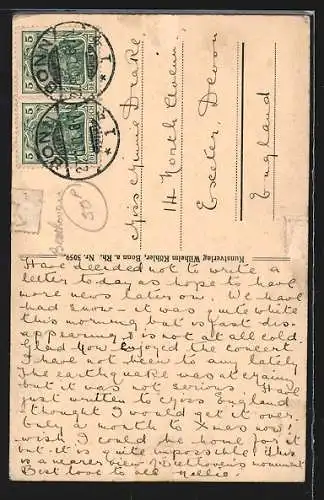 Miss Minnie Drake,
14 North Avenue,
Exeter, Devon
England
Kunstverlag Wilhelm Köhler, Bonn a. Rh. Nr. 3059.
BONN
BONN
5 5
5 5
Beethoven
50 P
Have decided not to write a
letter today as hope to have
more news later on. We have
had snow - it was quite white
this morning but is fast dis-
appearing, it is not at all cold.
Glad you enjoyed the concert.
I have not been to any lately
The earthquake was at
but it was not serious. Have
just written to Miss England
thought I would get it over.
Only a month to Xmas now! I
wish I could be home for it
but it is quite impossible. This
is a nearer view of Beethovens monument
Best love to all. Nellie.